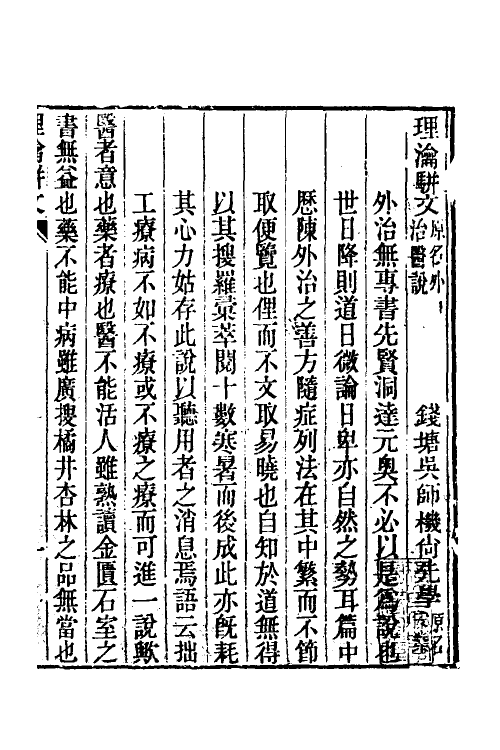 理瀹駢文原名外治醫說 錢塘吳師機尙先學原名
外治無專書先賢洞達元奧不必以是爲說也
世日降則道日微論日卑亦自然之勢耳篇中
歷陳外治之善方隨症列法在其中繁而不節
取便覽也俚而不文取易曉也自知於道無得
以其搜羅薈萃閱十數寒暑而後成此亦旣耗
其心力姑存此說以聽用者之消息焉語云拙
工療病不如不療或不療之療而可進一說歟
醫者意也藥者療也醫不能活人雖熟讀金匱石室之
書無益也藥不能中病雖廣搜橘井杏林之品無當也
理瀹駢文